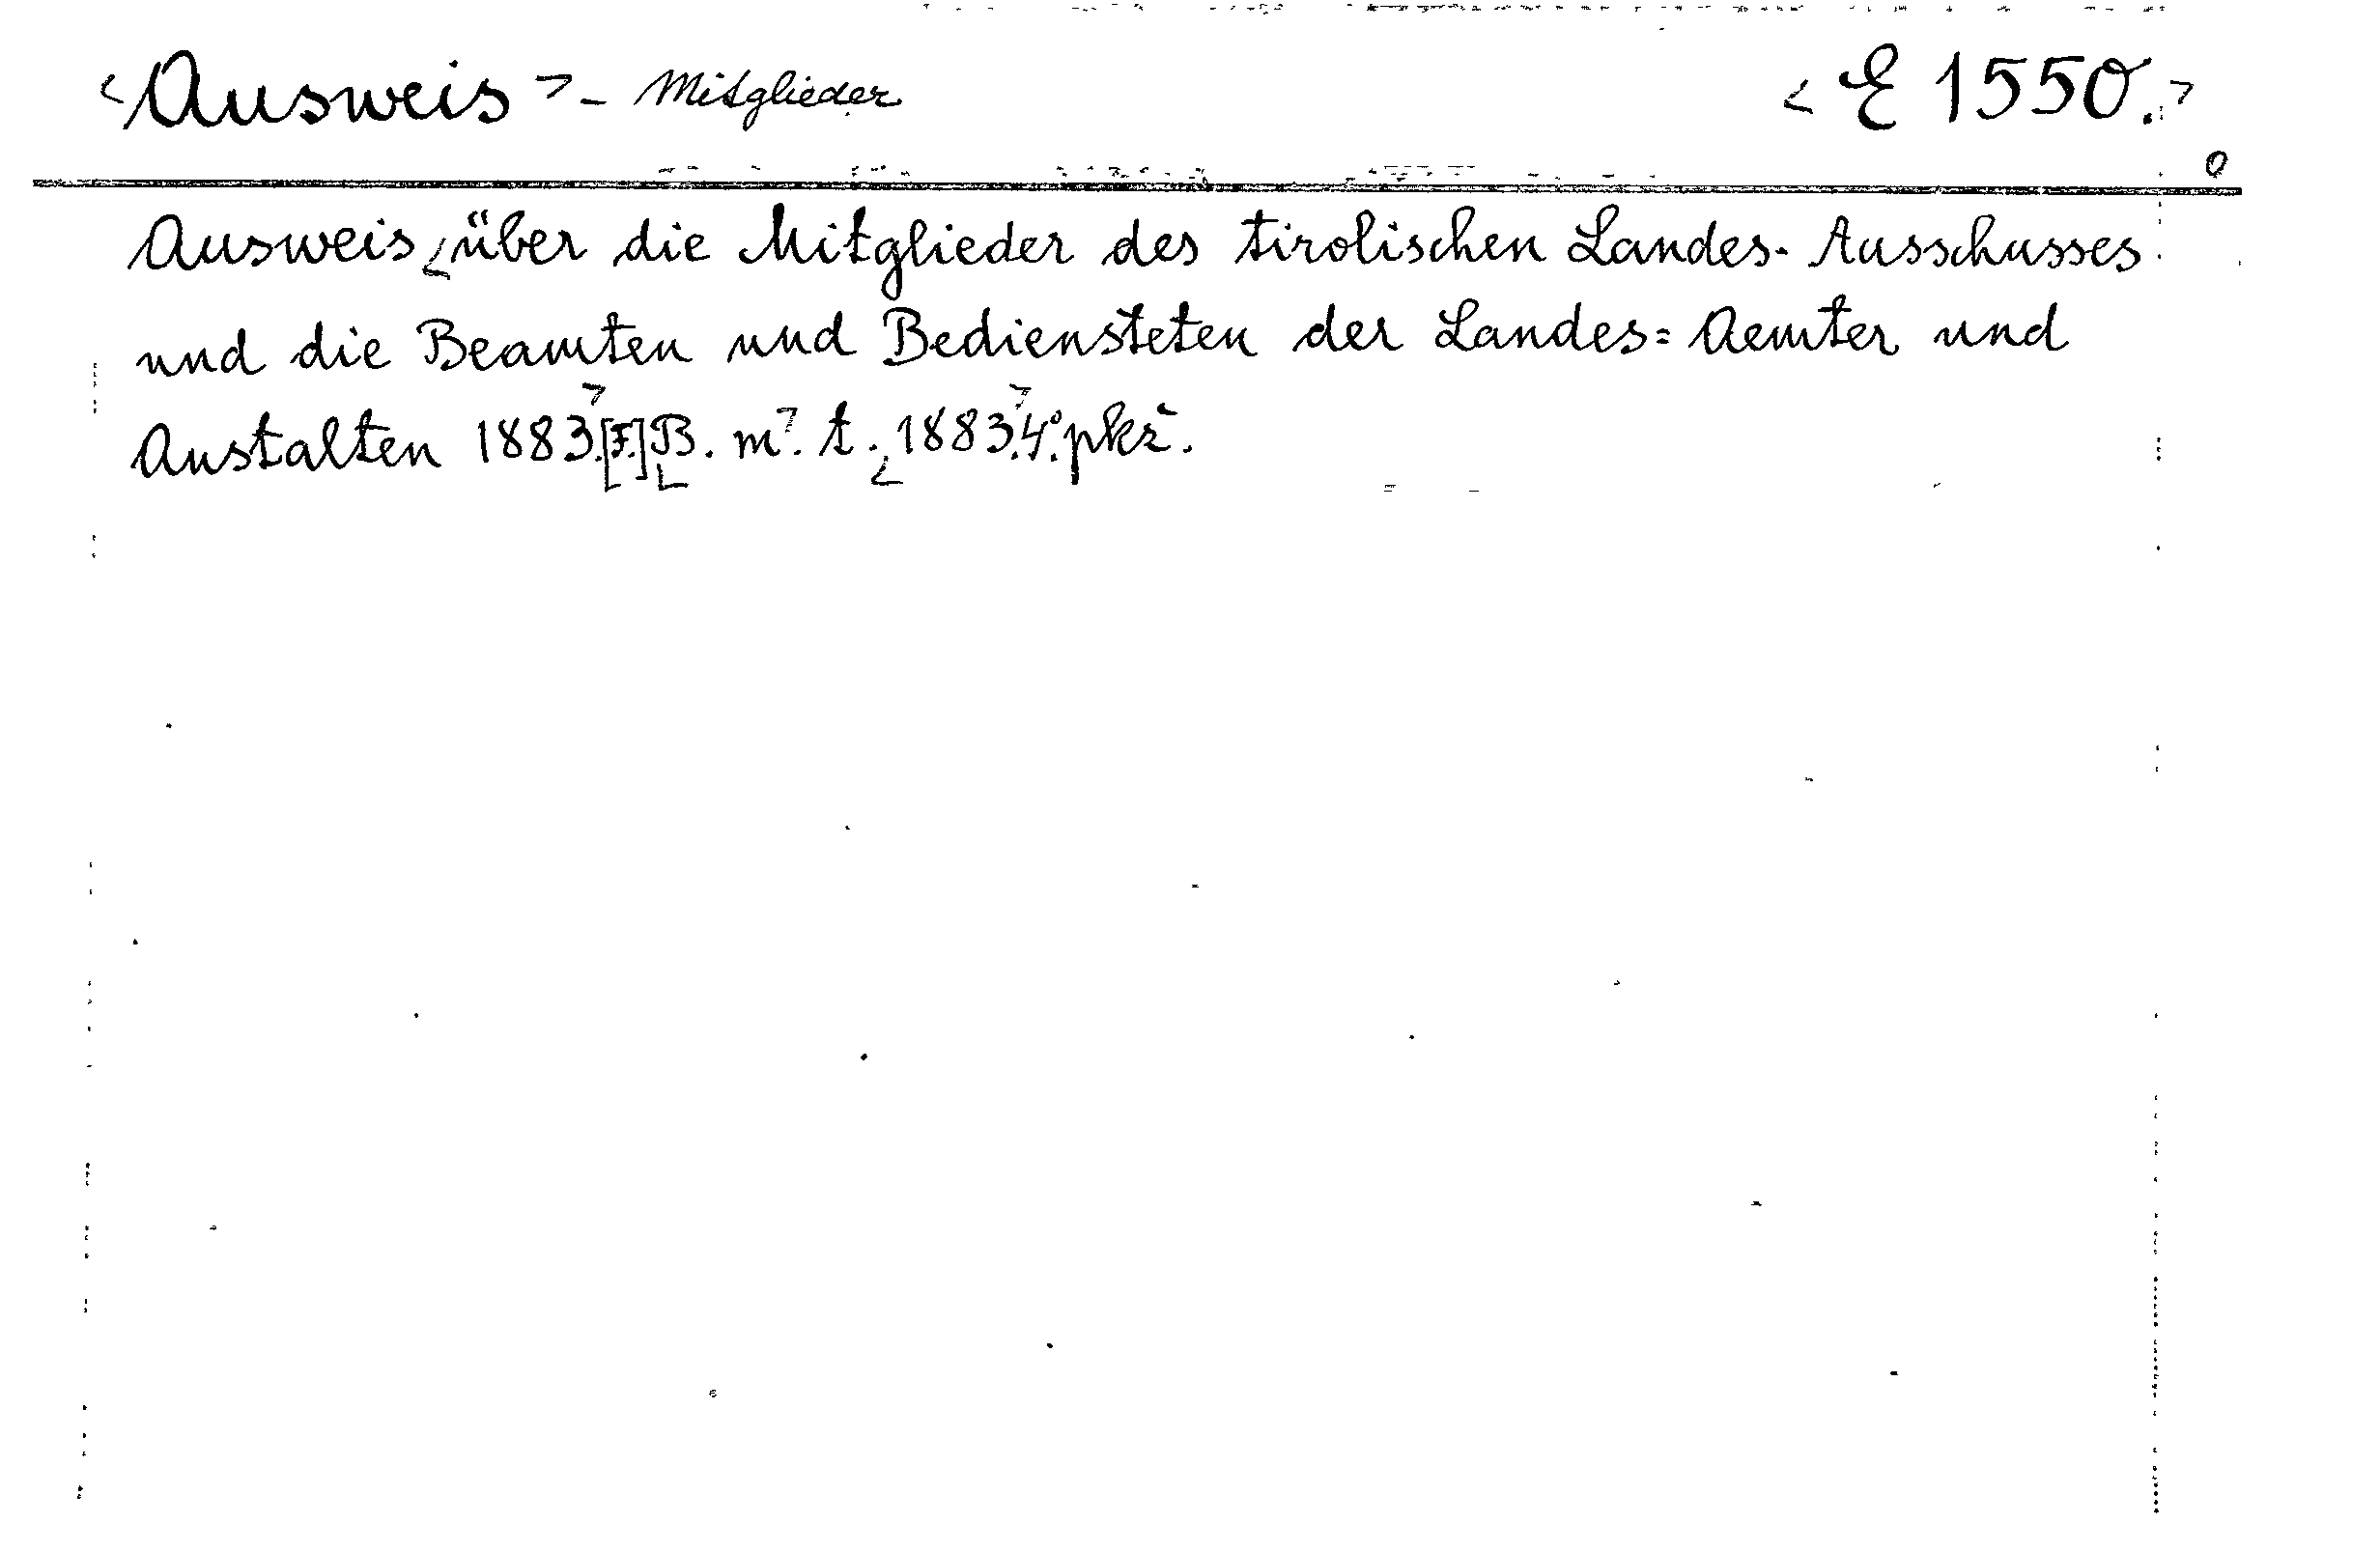 <Ausweis> - Mitglieder <E 1550.>
Ausweis <über die Mitglieder des tirolischen Landes-Ausschusses
und die Beamten und Bediensteten der Landes=Aemter und
Anstalten 1883.> [F.] B. m. t. 1883. 4° pkz.